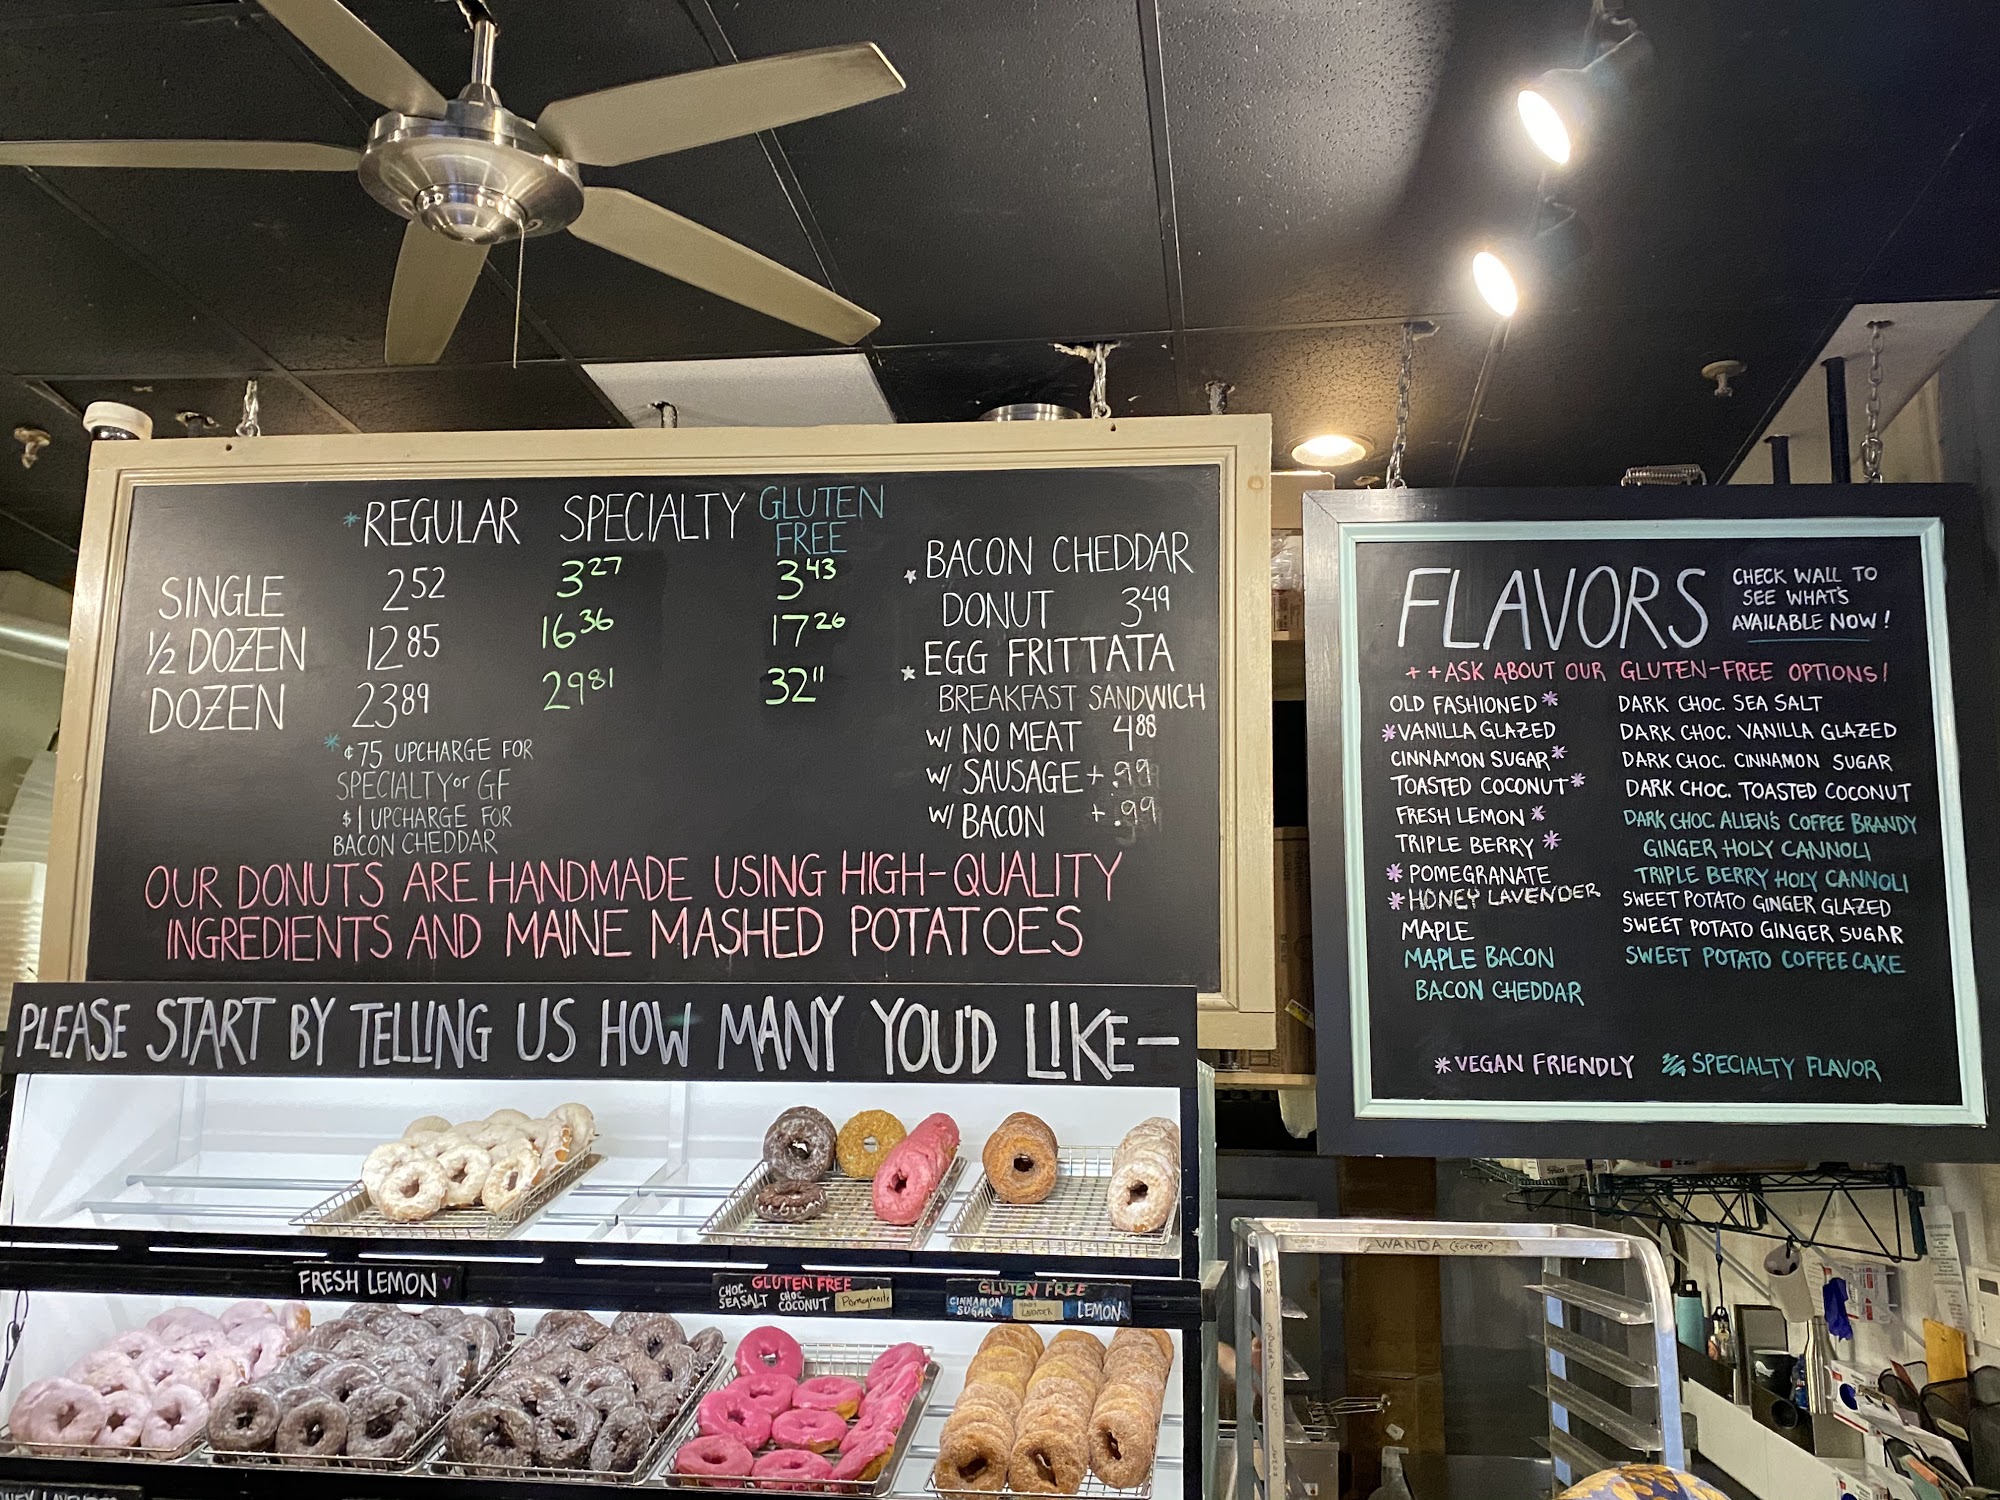 *REGULAR SPECIALTY GLUTEN FREE
SINGLE 2.52 3.27 3.43
1/2 DOZEN 12.85 16.36 17.26
DOZEN 23.89 29.81 32.11
*¢75 UPCHARGE FOR
SPECIALTY or GF
$1 UPCHARGE FOR
BACON CHEDDAR
*BACON CHEDDAR
DONUT 3.49
*EGG FRITTATA
BREAKFAST SANDWICH
W/ NO MEAT 4.88
W/ SAUSAGE +.99
W/ BACON +.99
OUR DONUTS ARE HANDMADE USING HIGH-QUALITY
INGREDIENTS AND MAINE MASHED POTATOES
PLEASE START BY TELLING US HOW MANY YOU'D LIKE—
FLAVORS
CHECK WALL TO
SEE WHAT'S
AVAILABLE NOW!
++ASK ABOUT OUR GLUTEN-FREE OPTIONS!
OLD FASHIONED*
*VANILLA GLAZED
CINNAMON SUGAR*
TOASTED COCONUT*
FRESH LEMON*
TRIPLE BERRY*
*POMEGRANATE
*HONEY LAVENDER
MAPLE
MAPLE BACON
BACON CHEDDAR
DARK CHOC. SEA SALT
DARK CHOC. VANILLA GLAZED
DARK CHOC. CINNAMON SUGAR
DARK CHOC. TOASTED COCONUT
DARK CHOC. ALLEN'S COFFEE BRANDY
GINGER HOLY CANNOLI
TRIPLE BERRY HOLY CANNOLI
SWEET POTATO GINGER GLAZED
SWEET POTATO GINGER SUGAR
SWEET POTATO COFFEECAKE
*VEGAN FRIENDLY SPECIALTY FLAVOR
FRESH LEMON
GLUTEN FREE
CHOC. SEASALT
CHOC. COCONUT
Pomegranate
GLUTEN FREE
CINNAMON SUGAR
LAVENDER
LEMON
WANDA (forever)